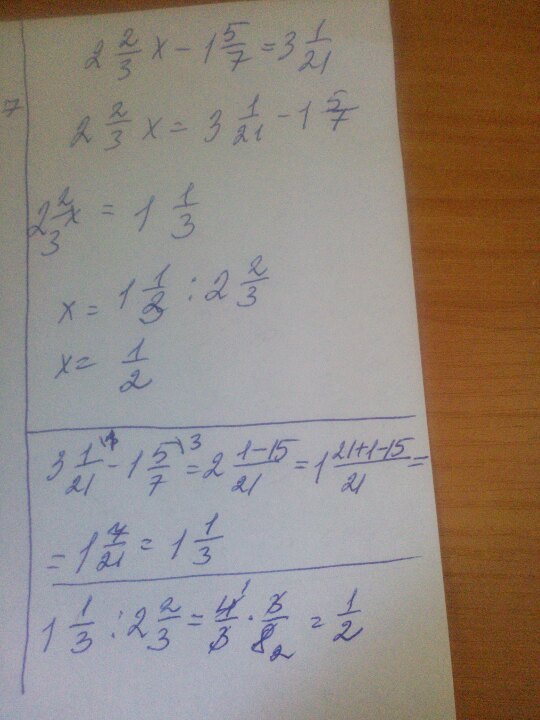 2 2/3 x - 1 5/7 = 3 1/21
2 2/3 x = 3 1/21 - 1 5/7
7
2 2/3 x = 1 1/3
x = 1 1/3 : 2 2/3
x = 1/2
3 1/21 \1 - 1 5/7 \3 = 2 (1-15)/21 = 1 (21+1-15)/21 =
= 1 7/21 = 1 1/3
1 1/3 : 2 2/3 = 4 1/3 · 3/8 2 = 1/2